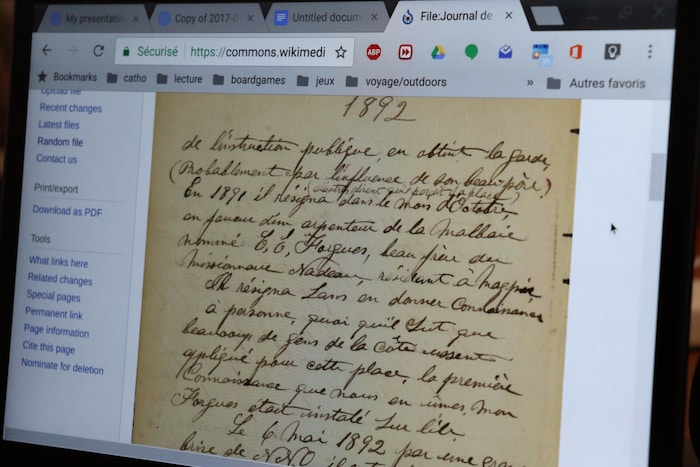 My presentation
Copy of 2017-0
Untitled docum
File:Journal de
Sécurisé
https://commons.wikimedi
ABP
Bookmarks
catho
lecture
boardgames
jeux
voyage/outdoors
»
Autres favoris
Upload file
Recent changes
Latest files
Random file
Contact us
Print/export
Download as PDF
Tools
What links here
Related changes
Special pages
Permanent link
Page information
Cite this page
Nominate for deletion
1892
de l'instruction publique, en obtint la garde,
(Probablement par l'influence de son beau père.)
(d'autres disent qu'il perdit sa place)
En 1891 il résigna dans le mois d'Octobre,
en faveur d'un arpenteur de la Malbaie
nommé E, C, Forgues, beau frère du
missionnaire Nadeau, résidant à Magpie
Il résigna sans en donner connaissance
à personne, quoi qu'il sut que
beaucoup de gens de la Côte eussent
appliqué pour cette place, la première
connaissance que nous en eûmes, mon
Forgues était instalé sur l'île
Le 6 mai 1892 par une gran
brise de N.N.O il